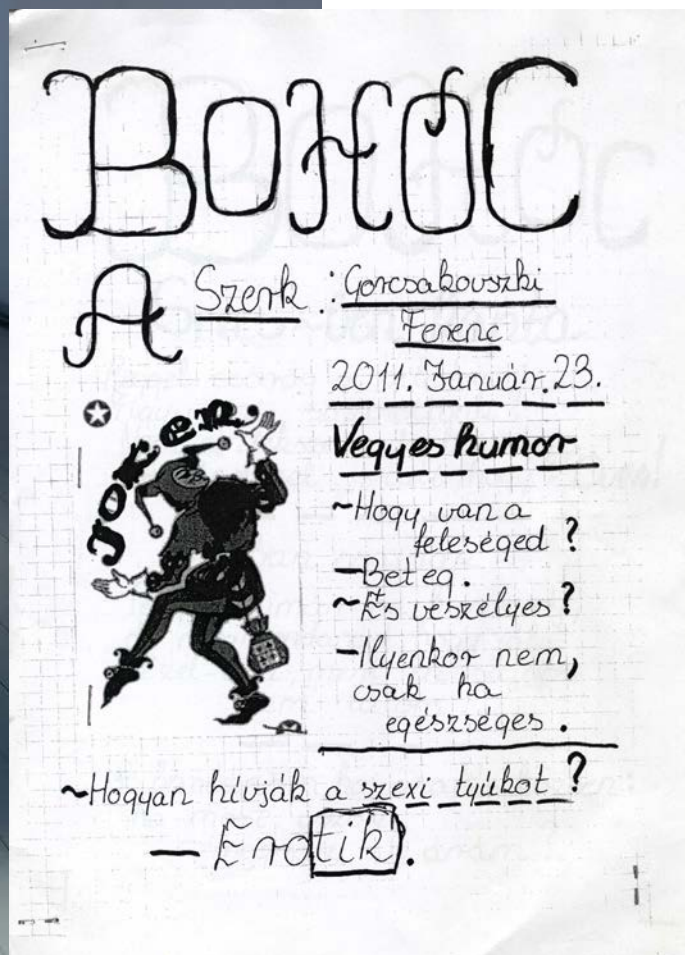 BOHÓC
A Szerk.: Gorcsakovszki
Ferenc
2011. Január. 23.
JOKER
Vegyes humor
~Hogy van a
feleséged?
—Beteg.
~És veszélyes?
—Ilyenkor nem,
csak ha
egészséges.
~Hogyan hívják a szexi tyúkot?
— Erotik.